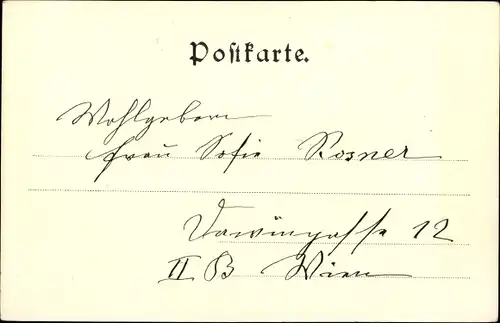 Postkarte.
Wohlgeboren
Frau Sofie Rosner
Darwingasse 12
II B Wien